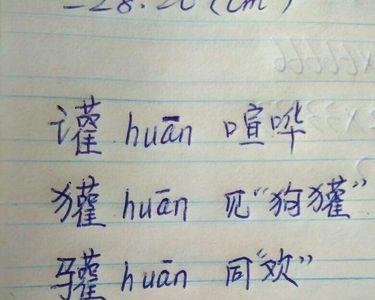 =28.26(cm²)
讙 huān 喧哗
獾 huān 见"狗獾"
驩 huān 同"欢"